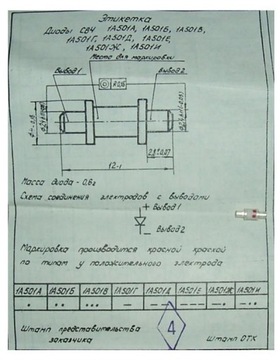 Этикетка
Диоды СВЧ 1А501А, 1А501Б, 1А501В,
1А501Г, 1А501Д, 1А501Е,
1А501Ж, 1А501И
Место для маркировки
Вывод 1
Вывод 2
12-1
Масса диода - 0,8г
Схема соединения электродов с выводами
+ Вывод 1
- Вывод 2
Маркировка производится красной краской
по типам у положительного электрода
1А501А 1А501Б 1А501В 1А501Г 1А501Д 1А501Е 1А501Ж 1А501И
4
Штамп представительства
заказчика
Штамп ОТК